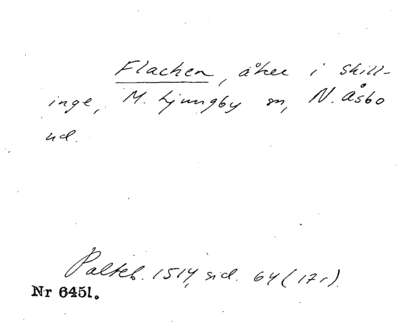 Flachen, åker i Skill-
inge, M. Ljungby sn, N. Åsbo
hd.
Palteb. 1514, sid. 64 (17r).
Nr 6451.